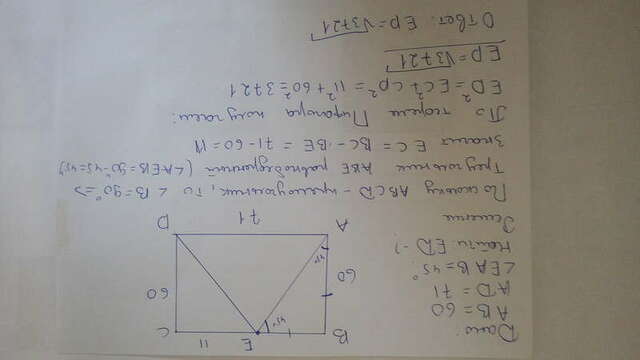 Дано:
AB = 60
AD = 71
∠EAB = 45°
Найти: ED - ?
B
E
C
11
45°
60
60
45°
A
71
D
Решение
Поскольку ABCD - прямоугольник, то ∠B = 90° =>
Треугольник ABE равнобедренный (∠AEB = 90° - 45 = 45°)
Значит EC = BC - BE = 71 - 60 = 11
По теореме Пифагора получаем:
ED² = EC² + CD² = 11² + 60² = 3721
ED = √3721
Ответ: ED = √3721